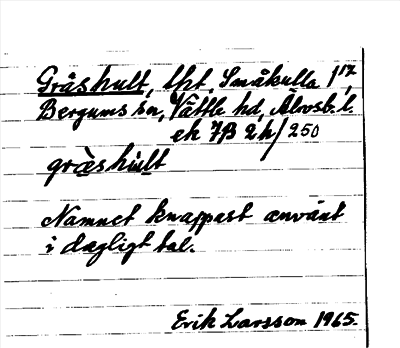 Gråshult, lht. Småkulla 1¹⁷,
Bergums sn, Vättle hd, Älvsb. l.
ek 7B 2h/250
gràshult
Namnet knappast använt
i dagligt tal.
Erik Larsson 1965.